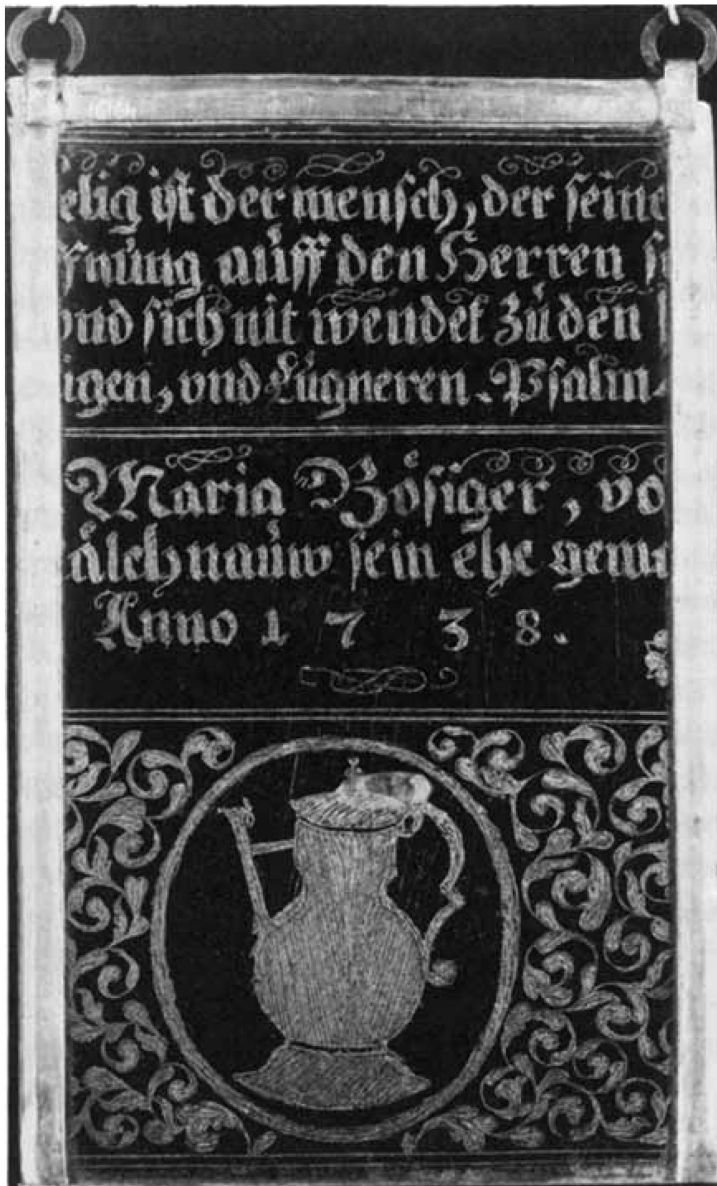 elig ist der mensch, der seine
ffnüng aüff den Herren s
vnd sich nit wendet Zü den
igen, vnd Lügneren. Psalm.
Maria Bösiger, vo
älchnaüw sein ehe gema
Anno 1738.